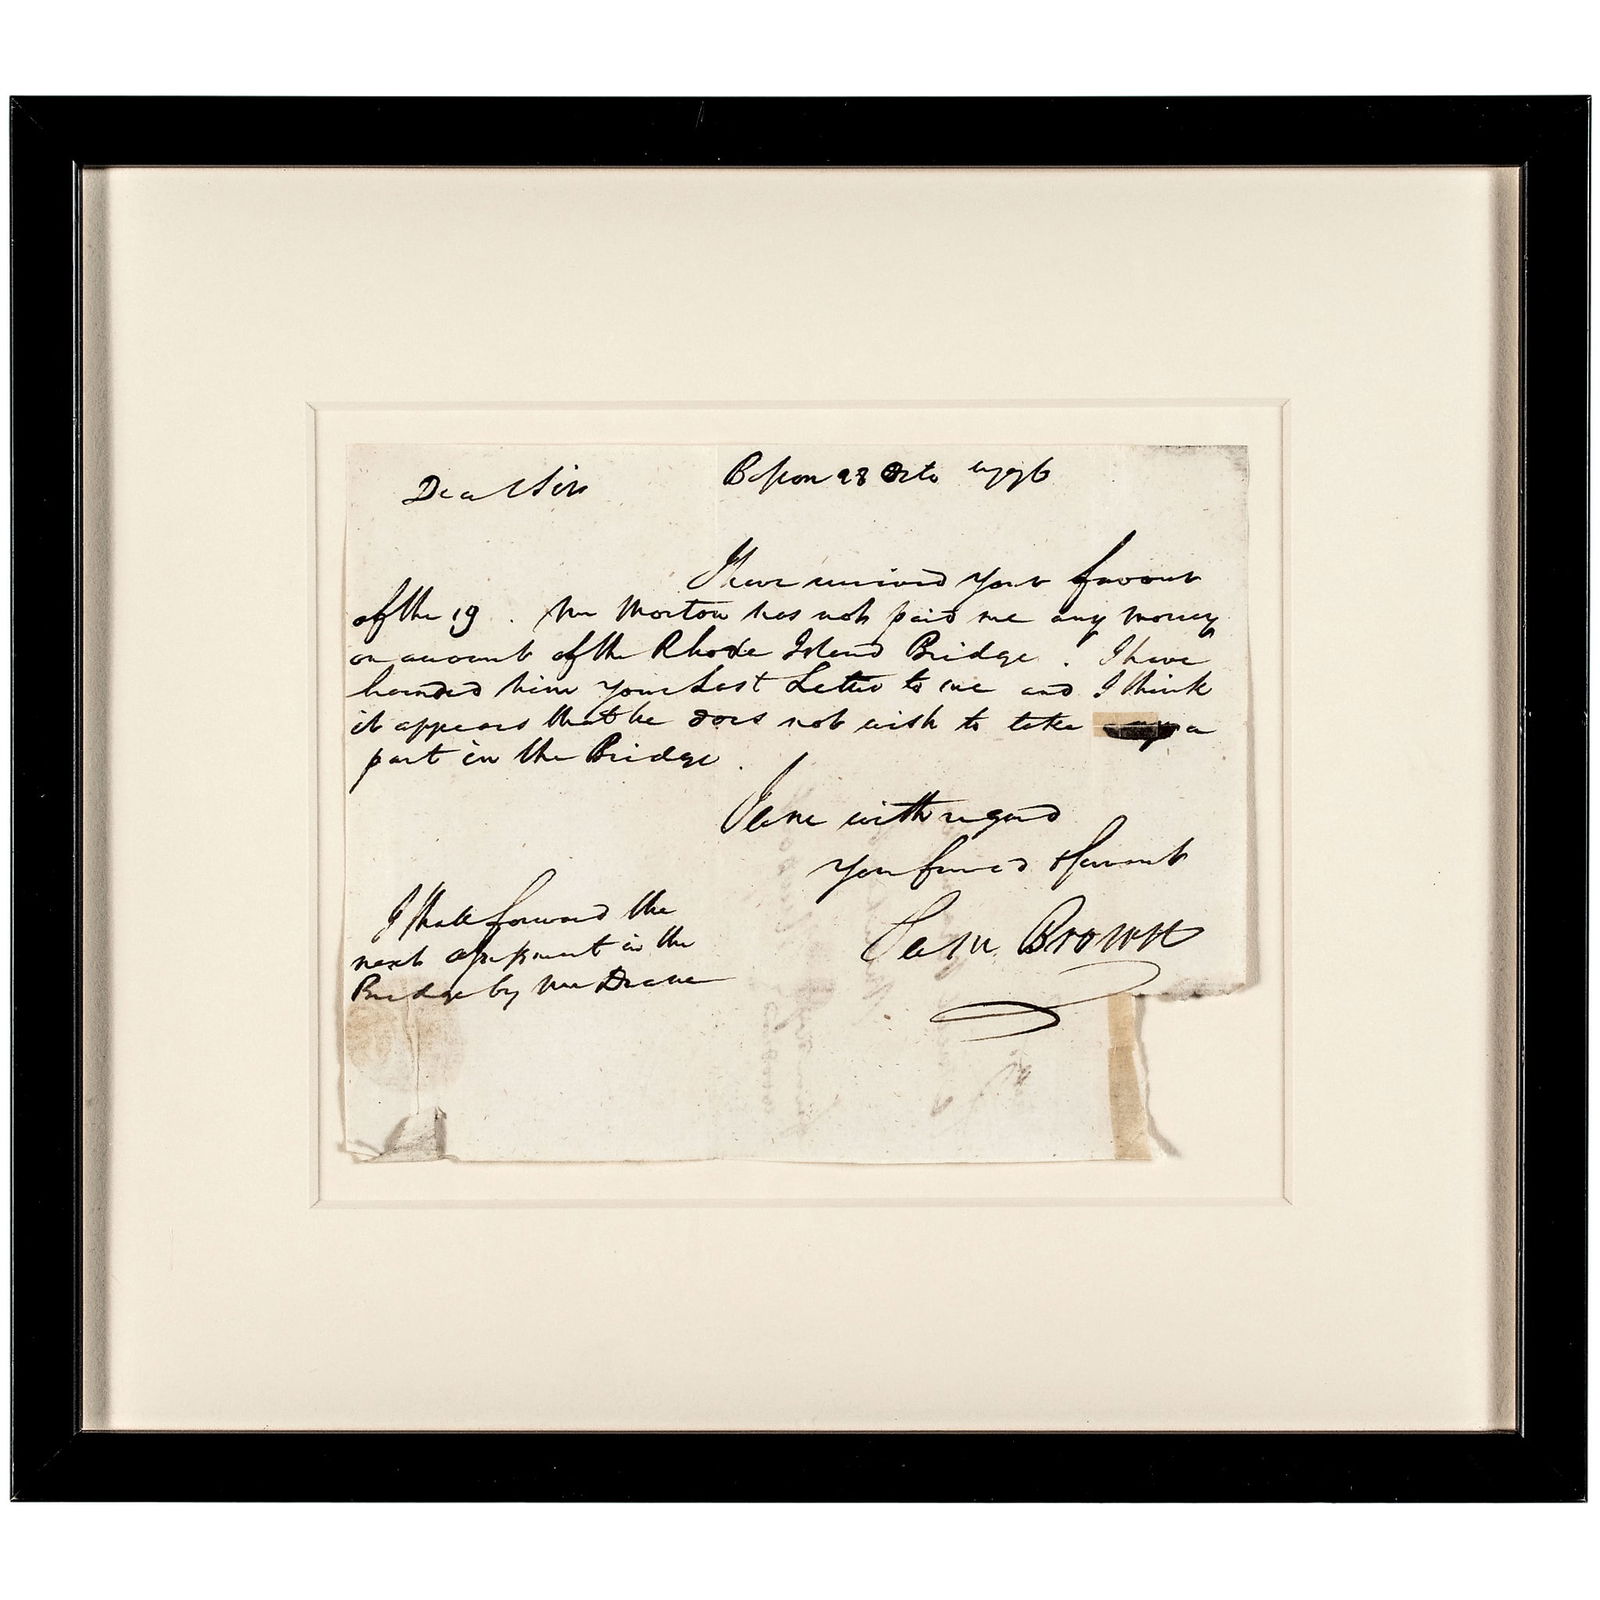 Dear Sir
Boston 28 Octo 1796
I have received your favour
of the 19 . Mr Morton has not paid me any money
on account of the Rhode Island Bridge . I have
handed him your Last Letter to me and I think
it appears that he does not wish to take a
part in the Bridge .
I am with regard
your friend & Servant
Sam Brown
I shall forward the
next assessment in the
Bridge by Mr